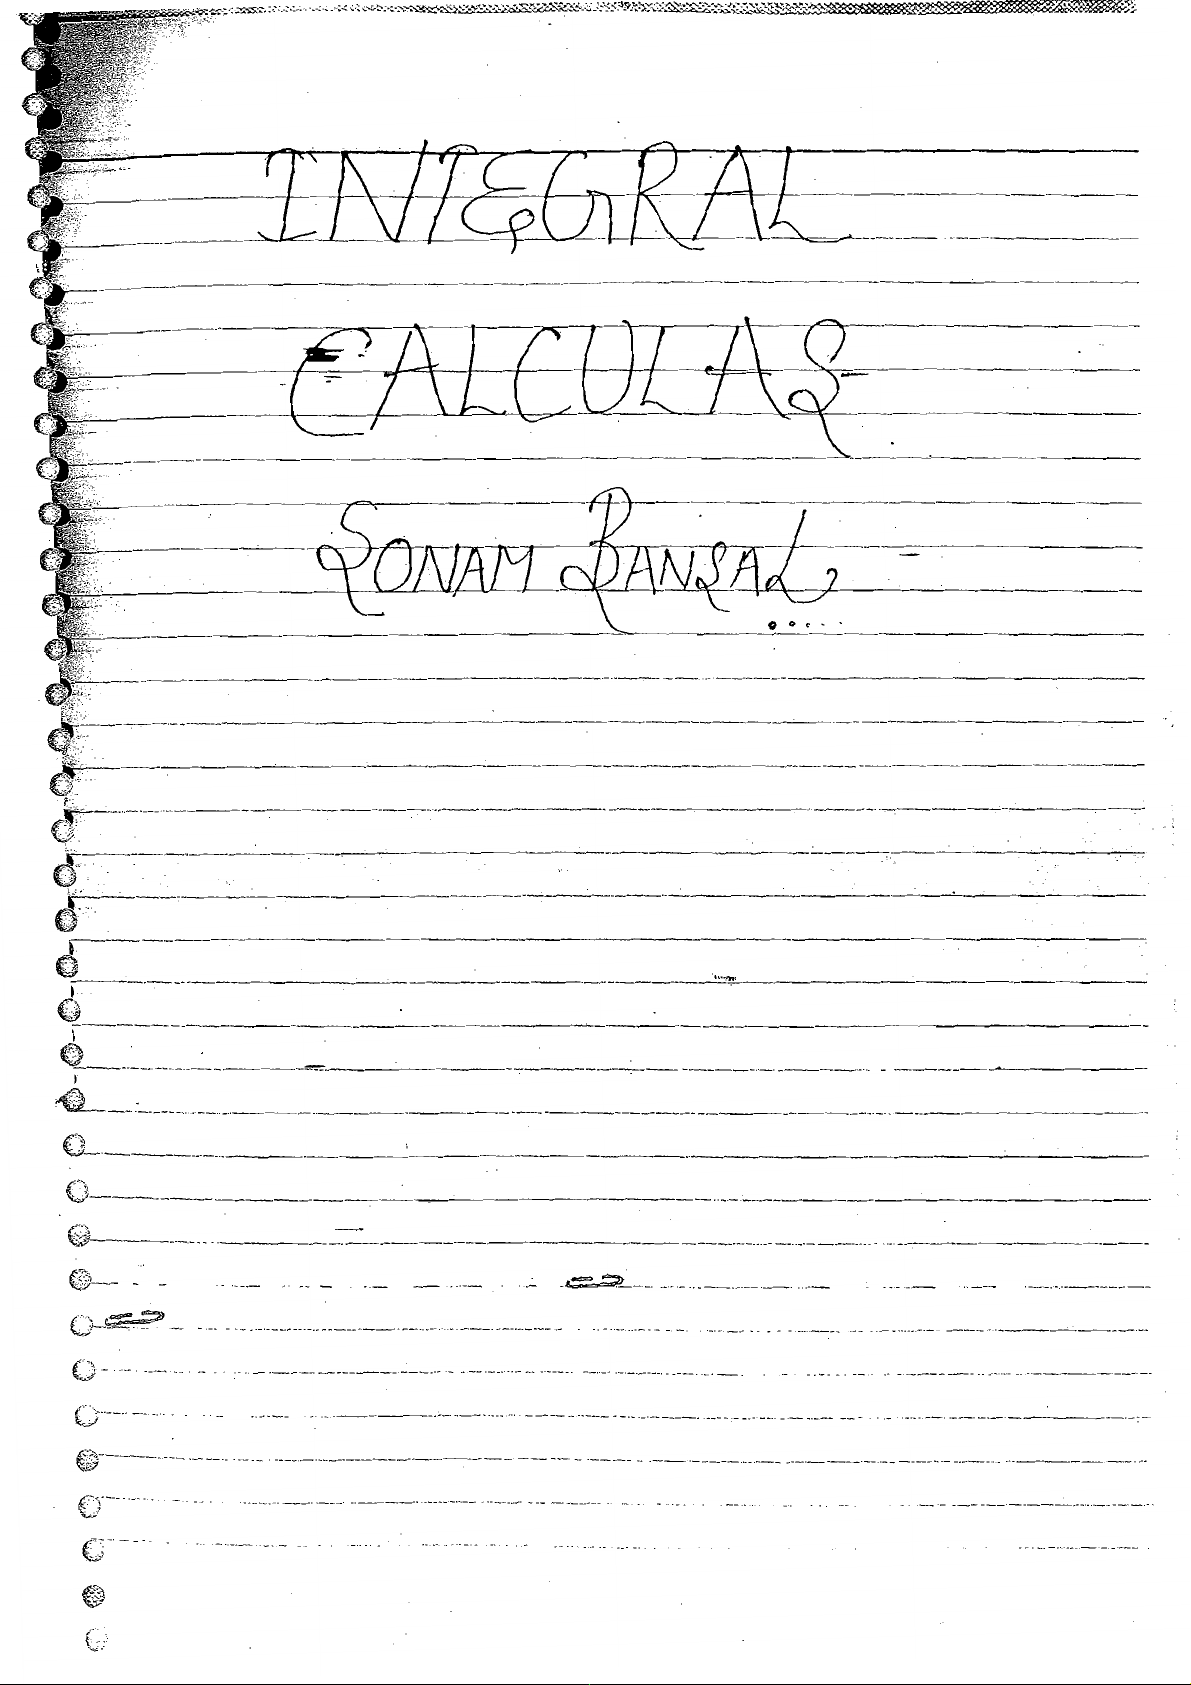 INTEGRAL
CALCULAS
SONAM BANSAL